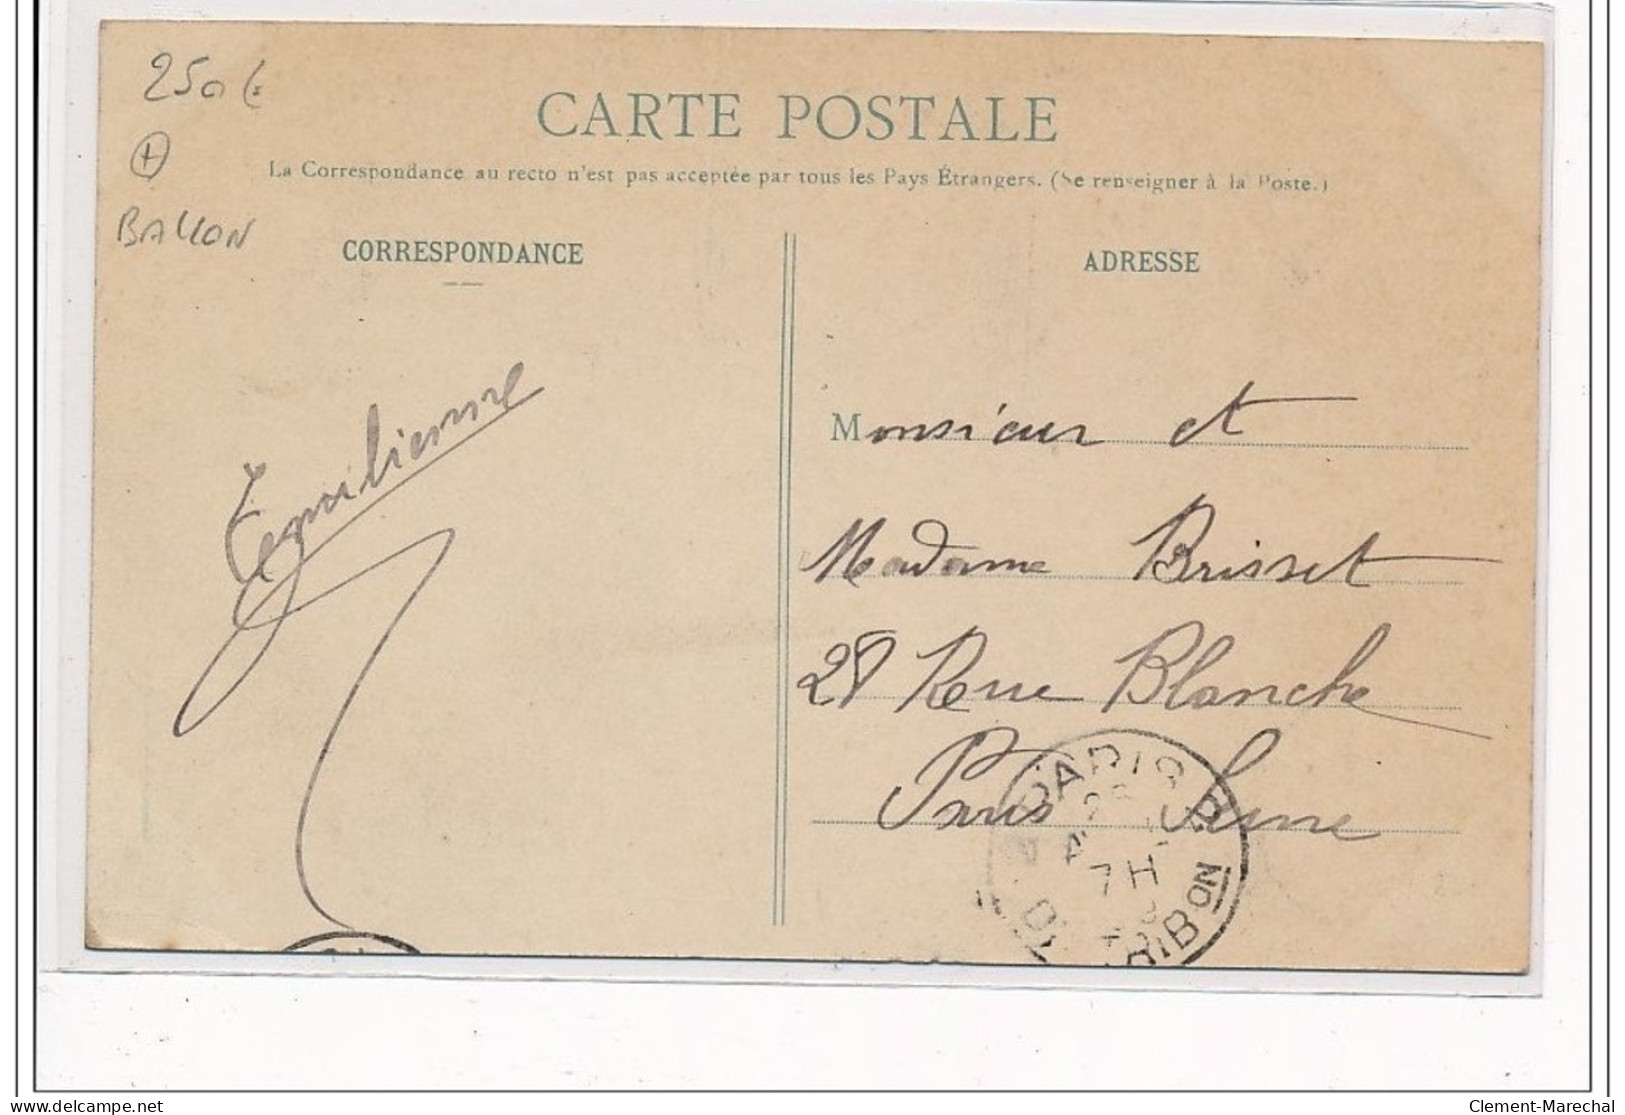 250 €
+
BALLON
CARTE POSTALE
La Correspondance au recto n'est pas acceptée par tous les Pays Étrangers. (Se renseigner à la Poste.)
CORRESPONDANCE
ADRESSE
Monsieur et
Madame Brisset
28 Rue Blanche
Paris Seine
PARIS
7H
DISTRIBON
delcampe.net
Clement-Marechal